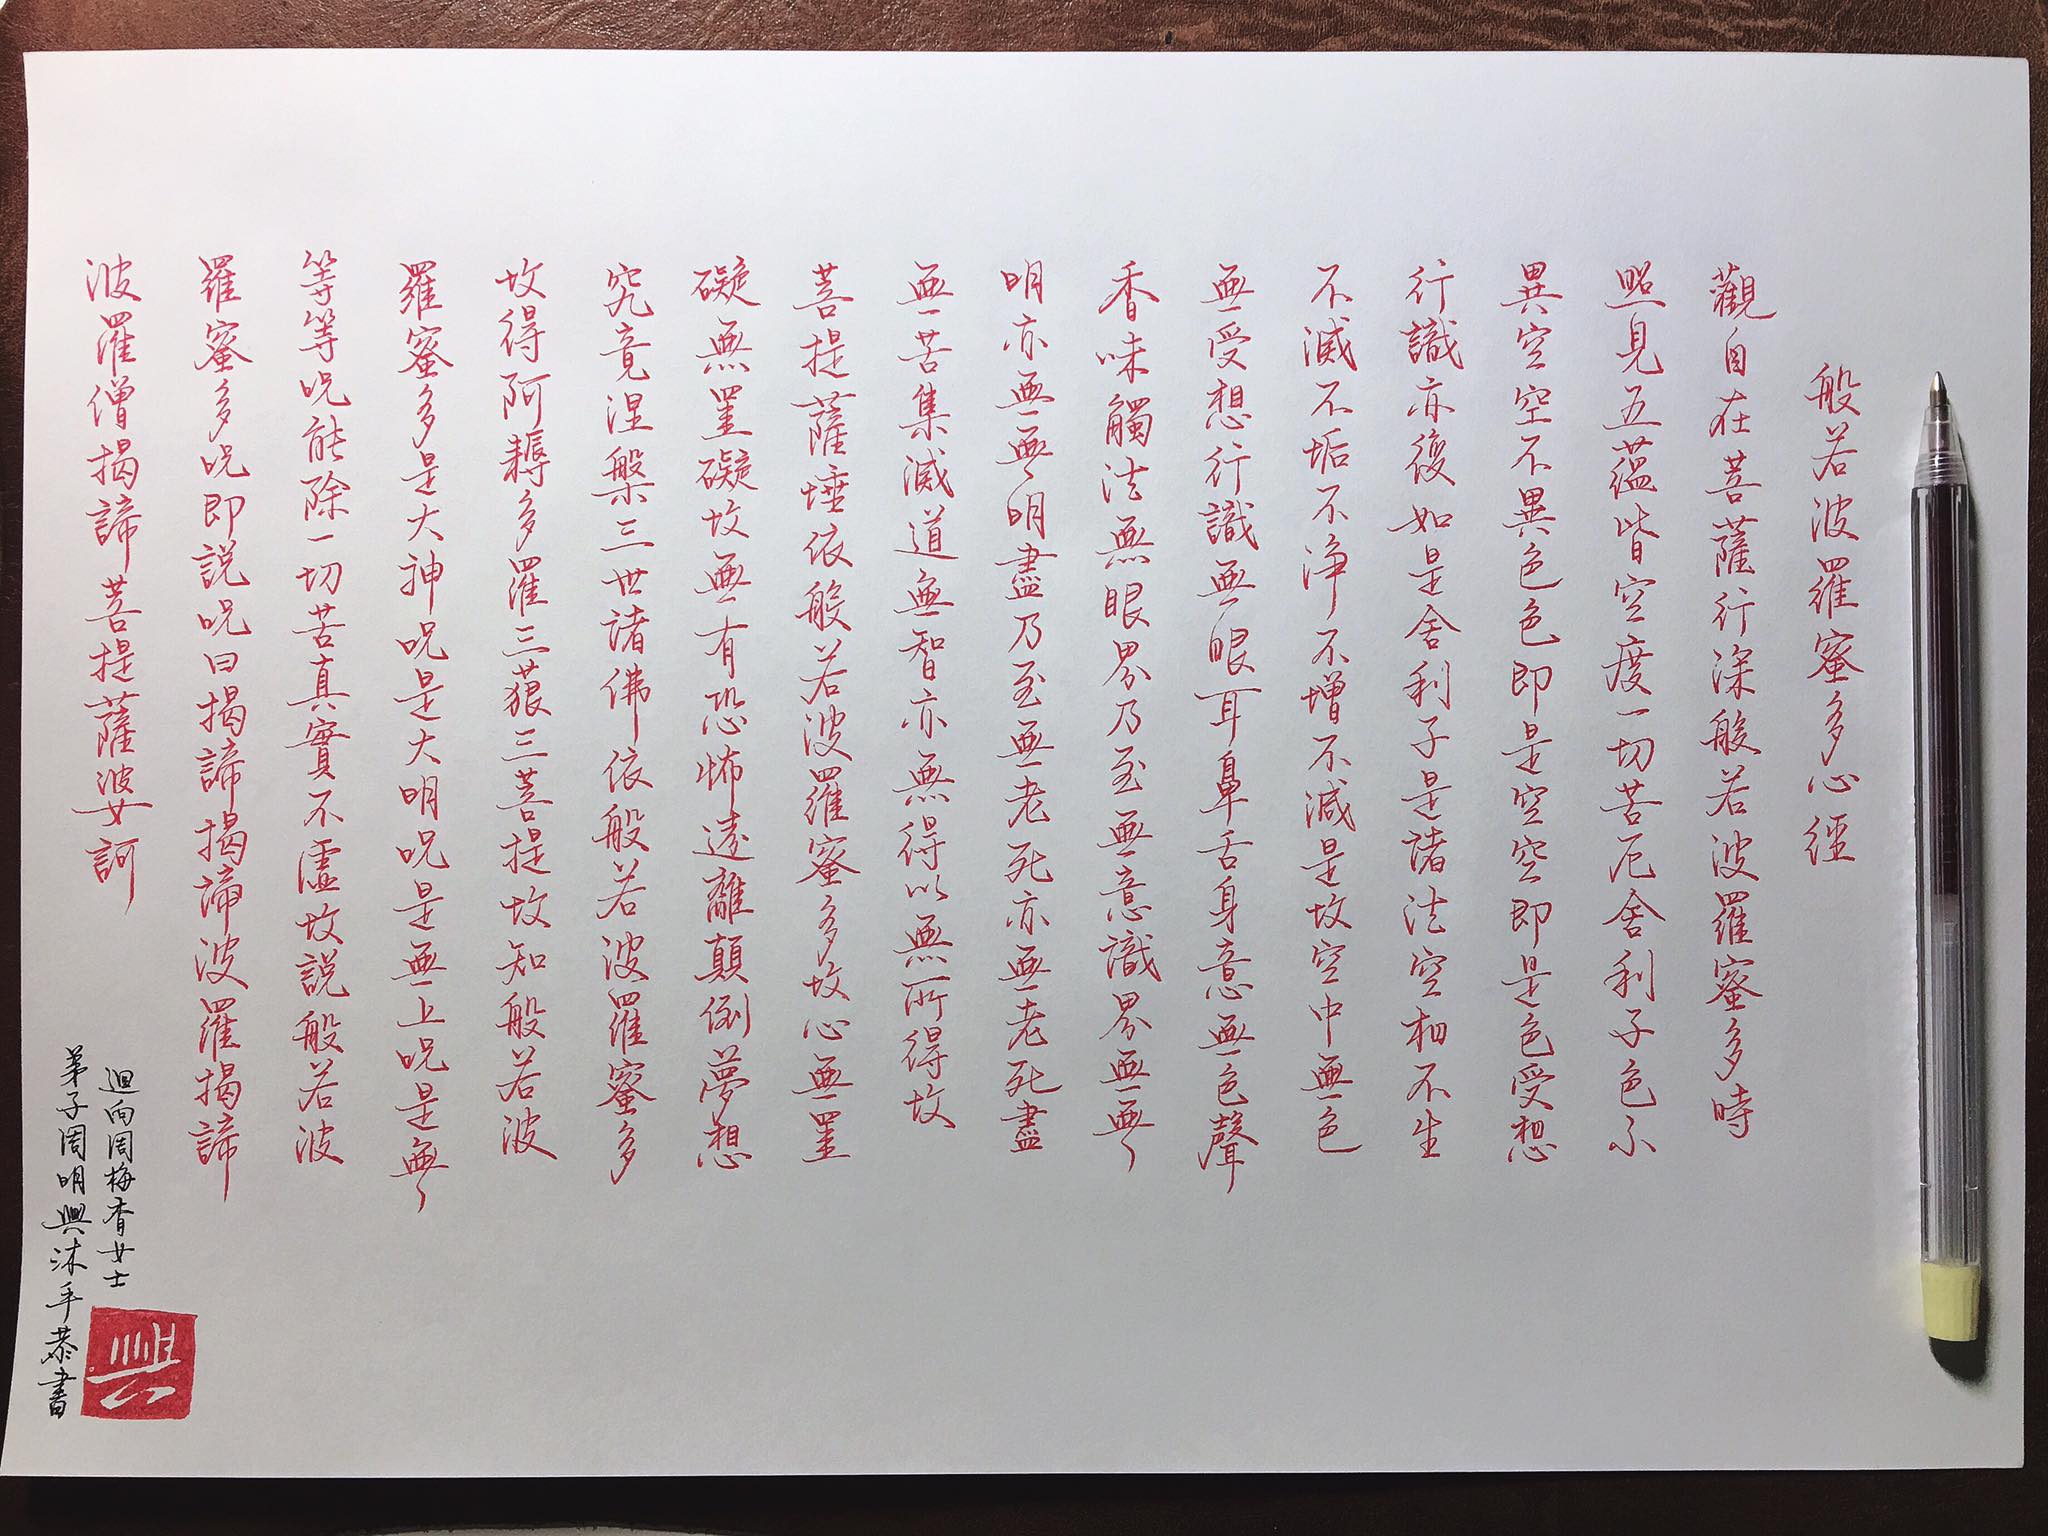 般若波羅蜜多心經
觀自在菩薩行深般若波羅蜜多時
照見五蘊皆空度一切苦厄舍利子色不
異空空不異色色即是空空即是色受想
行識亦復如是舍利子是諸法空相不生
不滅不垢不淨不增不減是故空中無色
無受想行識無眼耳鼻舌身意無色聲
香味觸法無眼界乃至無意識界無無
明亦無無明盡乃至無老死亦無老死盡
無苦集滅道無智亦無得以無所得故
菩提薩埵依般若波羅蜜多故心無罣
礙無罣礙故無有恐怖遠離顛倒夢想
究竟涅槃三世諸佛依般若波羅蜜多
故得阿耨多羅三藐三菩提故知般若波
羅蜜多是大神呪是大明呪是無上呪是無
等等呪能除一切苦真實不虛故說般若波
羅蜜多呪即說呪曰揭諦揭諦波羅揭諦
波羅僧揭諦菩提薩婆訶
迴向周梅香女士
弟子周明興沐手恭書
興